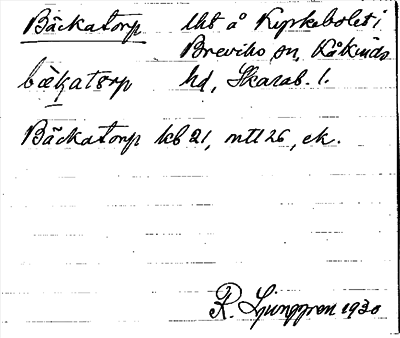 Bäckatorp lht å Kyrkebolet i
Breviks sn, Kåkinds
bækatørp hd, Skarab. l.
Bäckatorp kb 21, mtl 26, ek.
R. Ljunggren 1930